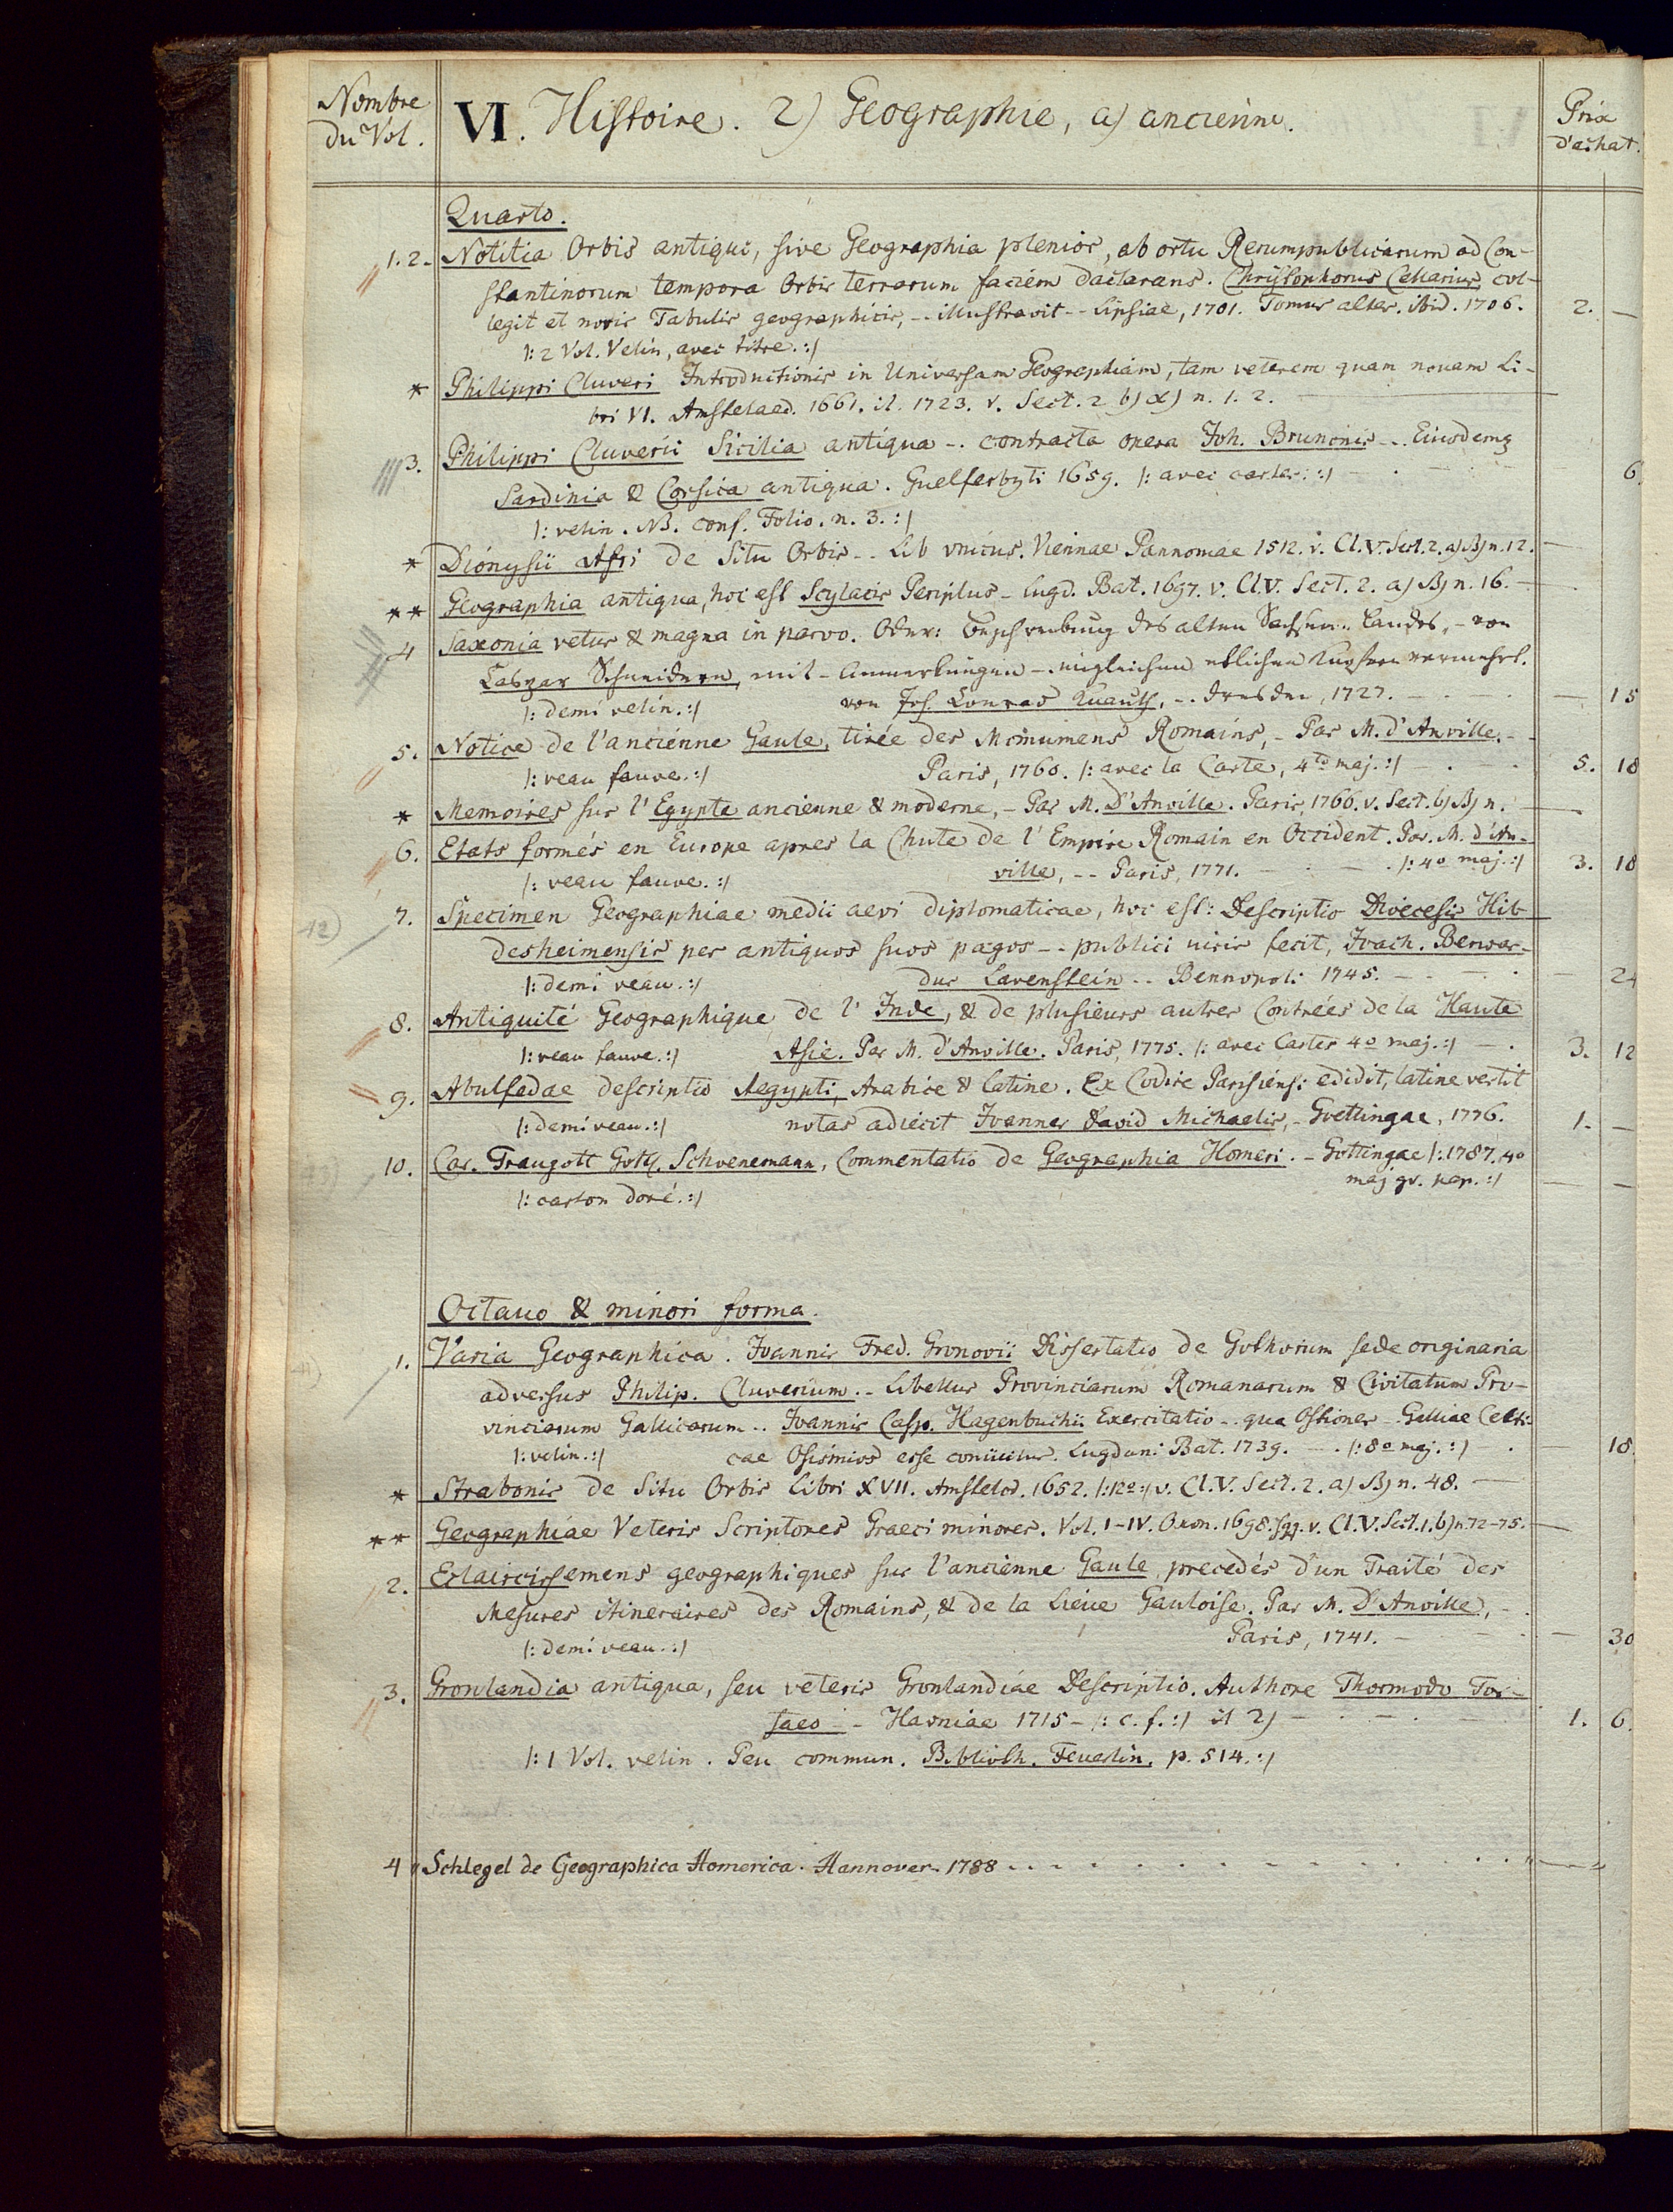 Nombre
du Vol.
VI. Histoire. 2) Geographie, a) ancienne.
Prix
d'achat.
Quarto.
1.2. Notitia Orbis antiqui, sive Geographia plenior, ab ortu Rerumpublicarum ad Con-
stantinorum tempora Orbis terrarum faciem declarans. Christophorus Cellarius, col-
legit et novis Tabulis geographicis, -- illustravit -- Lipsiae, 1701. Tomus alter. ibid. 1706. 2. —
|: 2 Vol. Velin, avec titre. :|
* Philippi Cluveri Introductionis in Universam Geographiam, tam veterem quam novam Li-
bri VI. Amstelaed. 1661. it. 1723. v. Sect. 2 b) α) n. 1. 2. —
3. Philippi Cluverii Sicilia antiqua -. contracta opera Joh. Bunonis -.. Eiusdemq
Sardinia & Corsica antiqua. Guelferbyti 1659. |: avec cartes. :| 6.
|: velin. NB. conf. Folio. n. 3. :|
* Dionysii Afri de Situ Orbis -- Lib unicus. Viennae Pannoniae 1512. v. Cl. V. Sect. 2. a) β) n. 12. —
** Geographia antiqua, hoc est Scylacis Periplus - Lugd. Bat. 1697. v. Cl. V. Sect. 2. a) β) n. 16. —
4 Saxonia vetus & magna in parvo. Oder: Beschreibung des alten Sachsen-Landes, - von
Caspar Schneidern, mit - Anmerkungen -. ingleichen etlichen Kupfern vermehrt.
|: demi velin. :| von Joh. Conrad Knauth, -. Dresden, 1727. — 15
5. Notice de l'ancienne Gaule, tirée des Monumens Romains, - Par M. d'Anville. -
|: veau fauve. :| Paris, 1760. |: avec la Carte, 4to maj. :| 5. 18
* Memoires sur l'Egypte ancienne & moderne, - Par M. D'Anville. Paris, 1766. v. Sect. b) β) n. —
6. Etats formés en Europe apres la Chute de l'Empire Romain en Occident. Par. M. d'An-
|: veau fauve. :| ville, -- Paris, 1771. |: 4o maj. :| 3. 18
7. Specimen Geographiae medii aevi diplomaticae, hoc est: Descriptio Dioecesis Hil-
desheimensis per antiquos suos pagos -- publici iuris fecit, Ioach. Berwar-
|: demi veau. :| dus Lavenstein -- Bennopoli 1745. — 24
8. Antiquité Geographique de l'Inde, & de plusieurs autres Contrées de la Haute
|: veau fauve. :| Asie. Par M. d'Anville. Paris, 1775. |: avec Cartes 4o maj. :| 3. 12
9. Abulfedae descriptio Aegypti, Arabice & latine. Ex Codice Parisiensi edidit, latine vertit
|: demi veau. :| notas adiecit Ioannes David Michaelis, - Goettingae, 1776. 1. —
10. Car. Traugott Gottl. Schoenemann, Commentatio de Geographia Homeri. - Gottingae |: 1787. 4o
maj gr. pap. :| — —
|: carton doré. :|
Octavo & minori forma.
1. Varia Geographica. Ioannis Fred. Gronovii Dissertatio de Gothorum sede originaria
adversus Philip. Cluverium. - Libellus Provinciarum Romanarum & Civitatum Pro-
vinciarum Gallicarum -. Ioannis Casp. Hagenbuchii Exercitatio -. qua Ostiones - Galliae Celti-
|: velin. :| cae Osismios esse conücitur. Lugduni Bat. 1739. |: 8o maj. :| 18
* Strabonis de Situ Orbis Libri XVII. Amstelod. 1652. |: 12o :| v. Cl. V. Sect. 2. a) β) n. 48. —
** Geographiae Veteris Scriptores Graeci minores. Vol. I-IV. Oxon. 1698. sqq. v. Cl. V. Sect. 1. b) n. 72-75. —
2. Eclaircissemens geographiques sur l'ancienne Gaule, precedés d'un Traité des
Mesures itineraires des Romains, & de la Lieüe Gauloise. Par M. D'Anville, -.
|: demi veau. :| Paris, 1741. — 30
3. Gronlandia antiqua, seu veteris Gronlandiae Descriptio. Authore Thormodo Tor-
faeo - Havniae 1715 - |: c. f. :| it 2) 1. 6.
|: 1 Vol. velin. Peu commun. Biblioth. Feuerlin. p. 514. :|
4 Schlegel de Geographica Homerica. Hannover. 1788